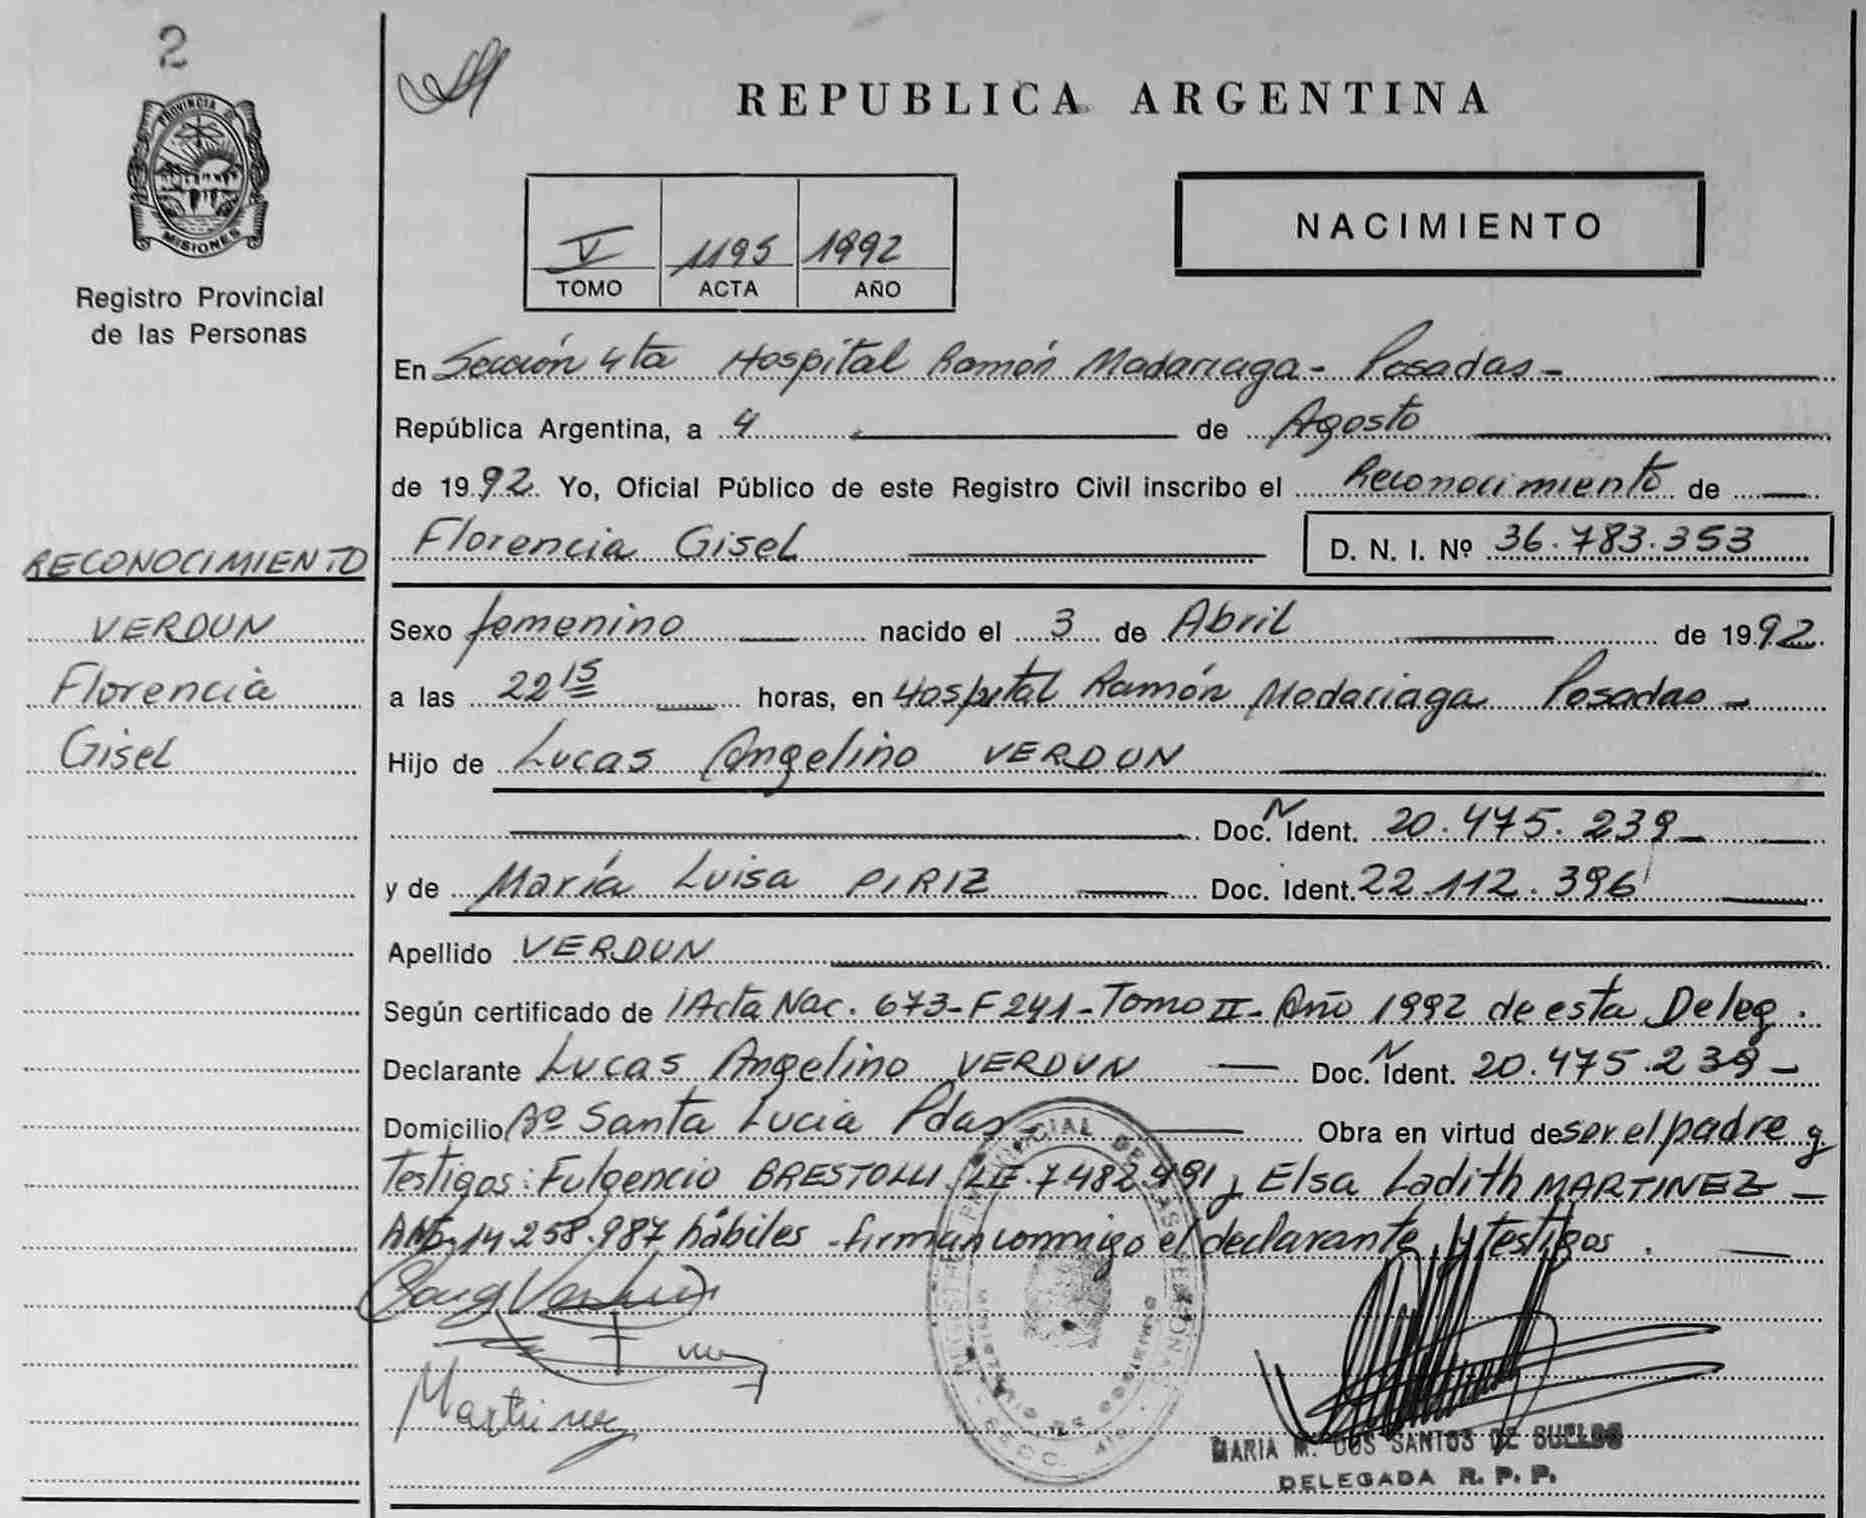 2
PROVINCIA D
MISIONES
Registro Provincial
de las Personas
RECONOCIMIENTO
VERDUN
Florencia
Gisel
REPUBLICA ARGENTINA
V 1195 1992
TOMO ACTA AÑO
NACIMIENTO
En Sección 4ta Hospital Ramón Madariaga - Posadas -
República Argentina, a 4 de Agosto
de 1992. Yo, Oficial Público de este Registro Civil inscribo el Reconocimiento de
Florencia Gisel D. N. I. Nº 36.783.353
Sexo femenino nacido el 3 de Abril de 1992.
a las 22 15 horas, en Hospital Ramón Madariaga Posadas -
Hijo de Lucas Angelino VERDUN
Doc. N Ident. 20.475.239
y de María Luisa PIRIZ Doc. Ident. 22.112.396
Apellido VERDUN
Según certificado de Acta Nac. 673-F 241-Tomo II- Año 1992 de esta Deleg.
Declarante Lucas Angelino VERDUN Doc. N Ident. 20.475.239 -
Domicilio Bº Santa Lucia Pdas - Obra en virtud de ser el padre y
Testigos: Fulgencio LE. 7482491 y Elsa Ladith MARTINEZ -
14.258.987 hábiles - firman conmigo el declarante y testigos.
Martinez
MARIA M. DOS SANTOS DE SUELDO
DELEGADA R. P. P.